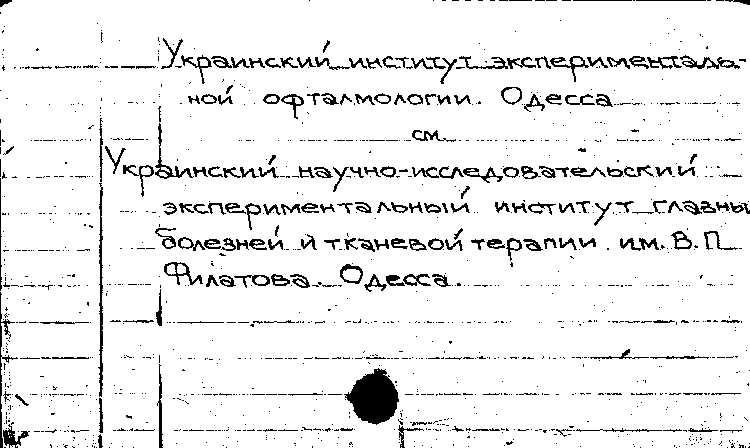 Украинский институт эксперименталь-
ной офталмологии. Одесса
см.
Украинский научно-исследовательский
экспериментальный институт главны
болезней и тканевой терапии им. В.П
Филатова. Одесса.